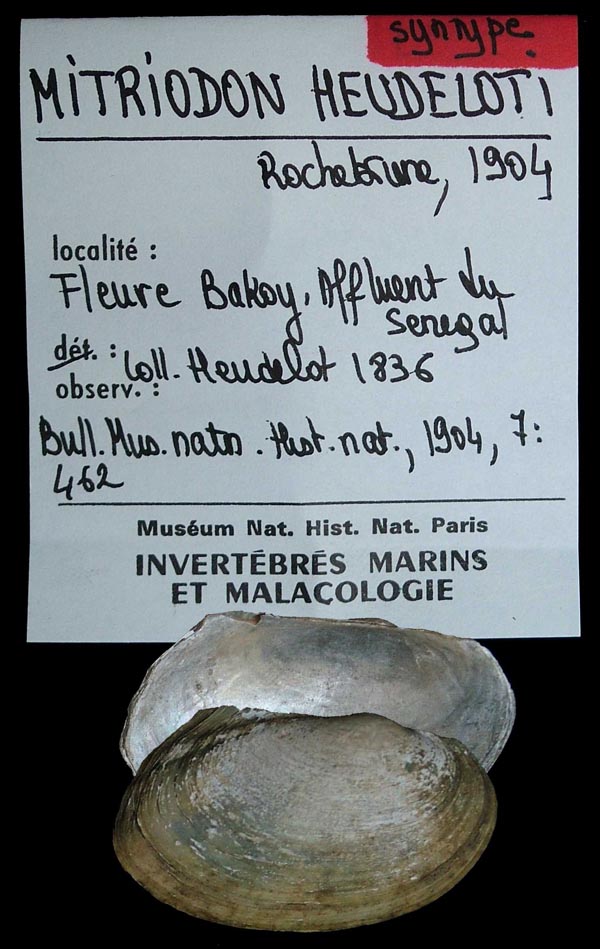 syntype
MITRIODON HEUDELOTI
Rochebrune, 1904
localité :
Fleuve Bakoy, Affluent du
Senegal
dét. : Coll. Heudelot 1836
observ. :
Bull. Mus. natn. Hist. nat., 1904, 7:
462
Muséum Nat. Hist. Nat. Paris
INVERTÉBRÉS MARINS
ET MALACOLOGIE